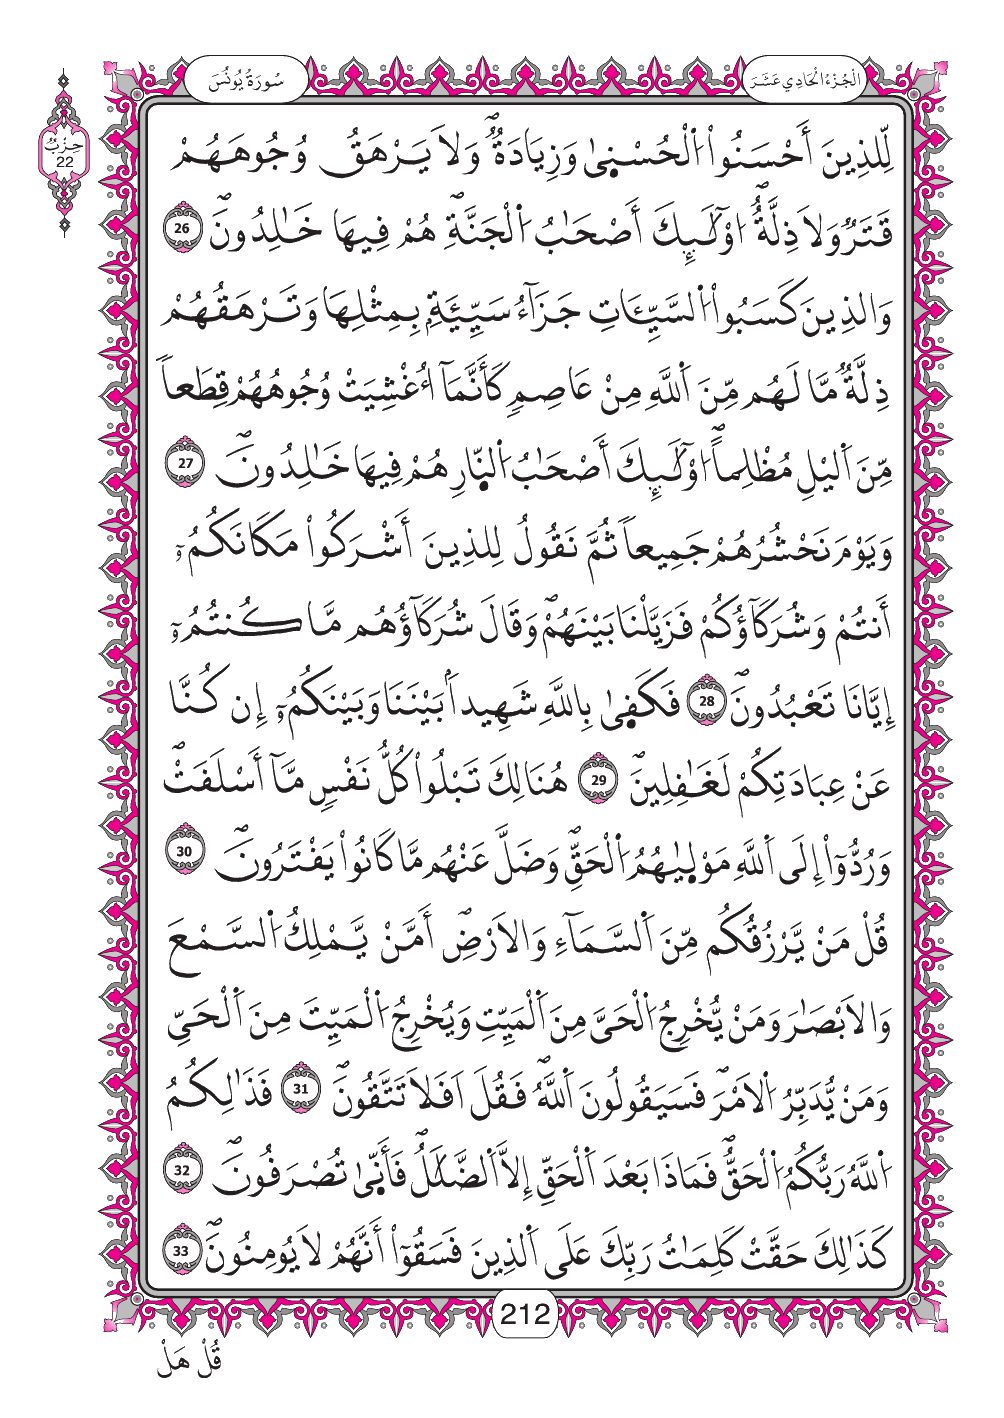 الْجُزْءُ الْحَادِي عَشَرَ
سُورَةُ يُونُسَ
حِزْبٌ
22
لِّلذِينَ أَحْسَنُواْ اُ۬لْحُسْن۪ىٰ وَزِيَادَةٞۖ وَلَا يَرْهَقُ وُجُوهَهُمْ
قَتَرٞ وَلَا ذِلَّةٌۖ ا۟وْلَٰٓئِكَ أَصْحَٰبُ اُ۬لْجَنَّةِۖ هُمْ فِيهَا خَٰلِدُونَۖ 26
وَالذِينَ كَسَبُواْ اُ۬لسَّيِّـَٔاتِ جَزَآءُ سَيِّئَةِۢ بِمِثْلِهَا وَتَرْهَقُهُمْ
ذِلَّةٞ مَّا لَهُم مِّنَ اَ۬للَّهِ مِنْ عَاصِمٖ كَأَنَّمَآ أُغْشِيَتْ وُجُوهُهُمْ قِطَعاٗ
مِّنَ اَ۬ليْلِ مُظْلِماًۖ ا۟وْلَٰٓئِكَ أَصْحَٰبُ اُ۬لنّ۪ارِ هُمْ فِيهَا خَٰلِدُونَۖ 27
وَيَوْمَ نَحْشُرُهُمْ جَمِيعاٗ ثُمَّ نَقُولُ لِلذِينَ أَشْرَكُواْ مَكَانَكُمُۥٓ
أَنتُمْ وَشُرَكَآؤُكُمْ فَزَيَّلْنَا بَيْنَهُمْۖ وَقَالَ شُرَكَآؤُهُم مَّا كُنتُمُۥٓ
إِيَّانَا تَعْبُدُونَۖ 28 فَكَف۪ىٰ بِاللَّهِ شَهِيداَۢ بَيْنَنَا وَبَيْنَكُمُۥٓ إِن كُنَّا
عَنْ عِبَادَتِكُمْ لَغَٰفِلِينَۖ 29 هُنَالِكَ تَبْلُواْ كُلُّ نَفْسٖ مَّآ أَسْلَفَتْۖ
وَرُدُّوٓاْ إِلَى اَ۬للَّهِ مَوْل۪يٰهُمُ اُ۬لْحَقِّۖ وَضَلَّ عَنْهُم مَّا كَانُواْ يَفْتَرُونَۖ 30
قُلْ مَنْ يَّرْزُقُكُم مِّنَ اَ۬لسَّمَآءِ وَالَارْضِۖ أَمَّنْ يَّمْلِكُ اُ۬لسَّمْعَ
وَالَابْصَٰرَ وَمَنْ يُّخْرِجُ اُ۬لْحَيَّ مِنَ اَ۬لْمَيِّتِ وَيُخْرِجُ اُ۬لْمَيِّتَ مِنَ اَ۬لْحَيِّ
وَمَنْ يُّدَبِّرُ اُ۬لَامْرَۖ فَسَيَقُولُونَ اَ۬للَّهُۖ فَقُلَ اَفَلَا تَتَّقُونَۖ 31 فَذَٰلِكُمُ
اُ۬للَّهُ رَبُّكُمُ اُ۬لْحَقُّۖ فَمَاذَا بَعْدَ اَ۬لْحَقِّ إِلَّا اَ۬لضَّلَٰلُۖ فَأَنّ۪ىٰ تُصْرَفُونَۖ 32
كَذَٰلِكَ حَقَّتْ كَلِمَٰتُ رَبِّكَ عَلَى اَ۬لذِينَ فَسَقُوٓاْ أَنَّهُمْ لَا يُومِنُونَۖ 33
212
قُلْ هَلْ